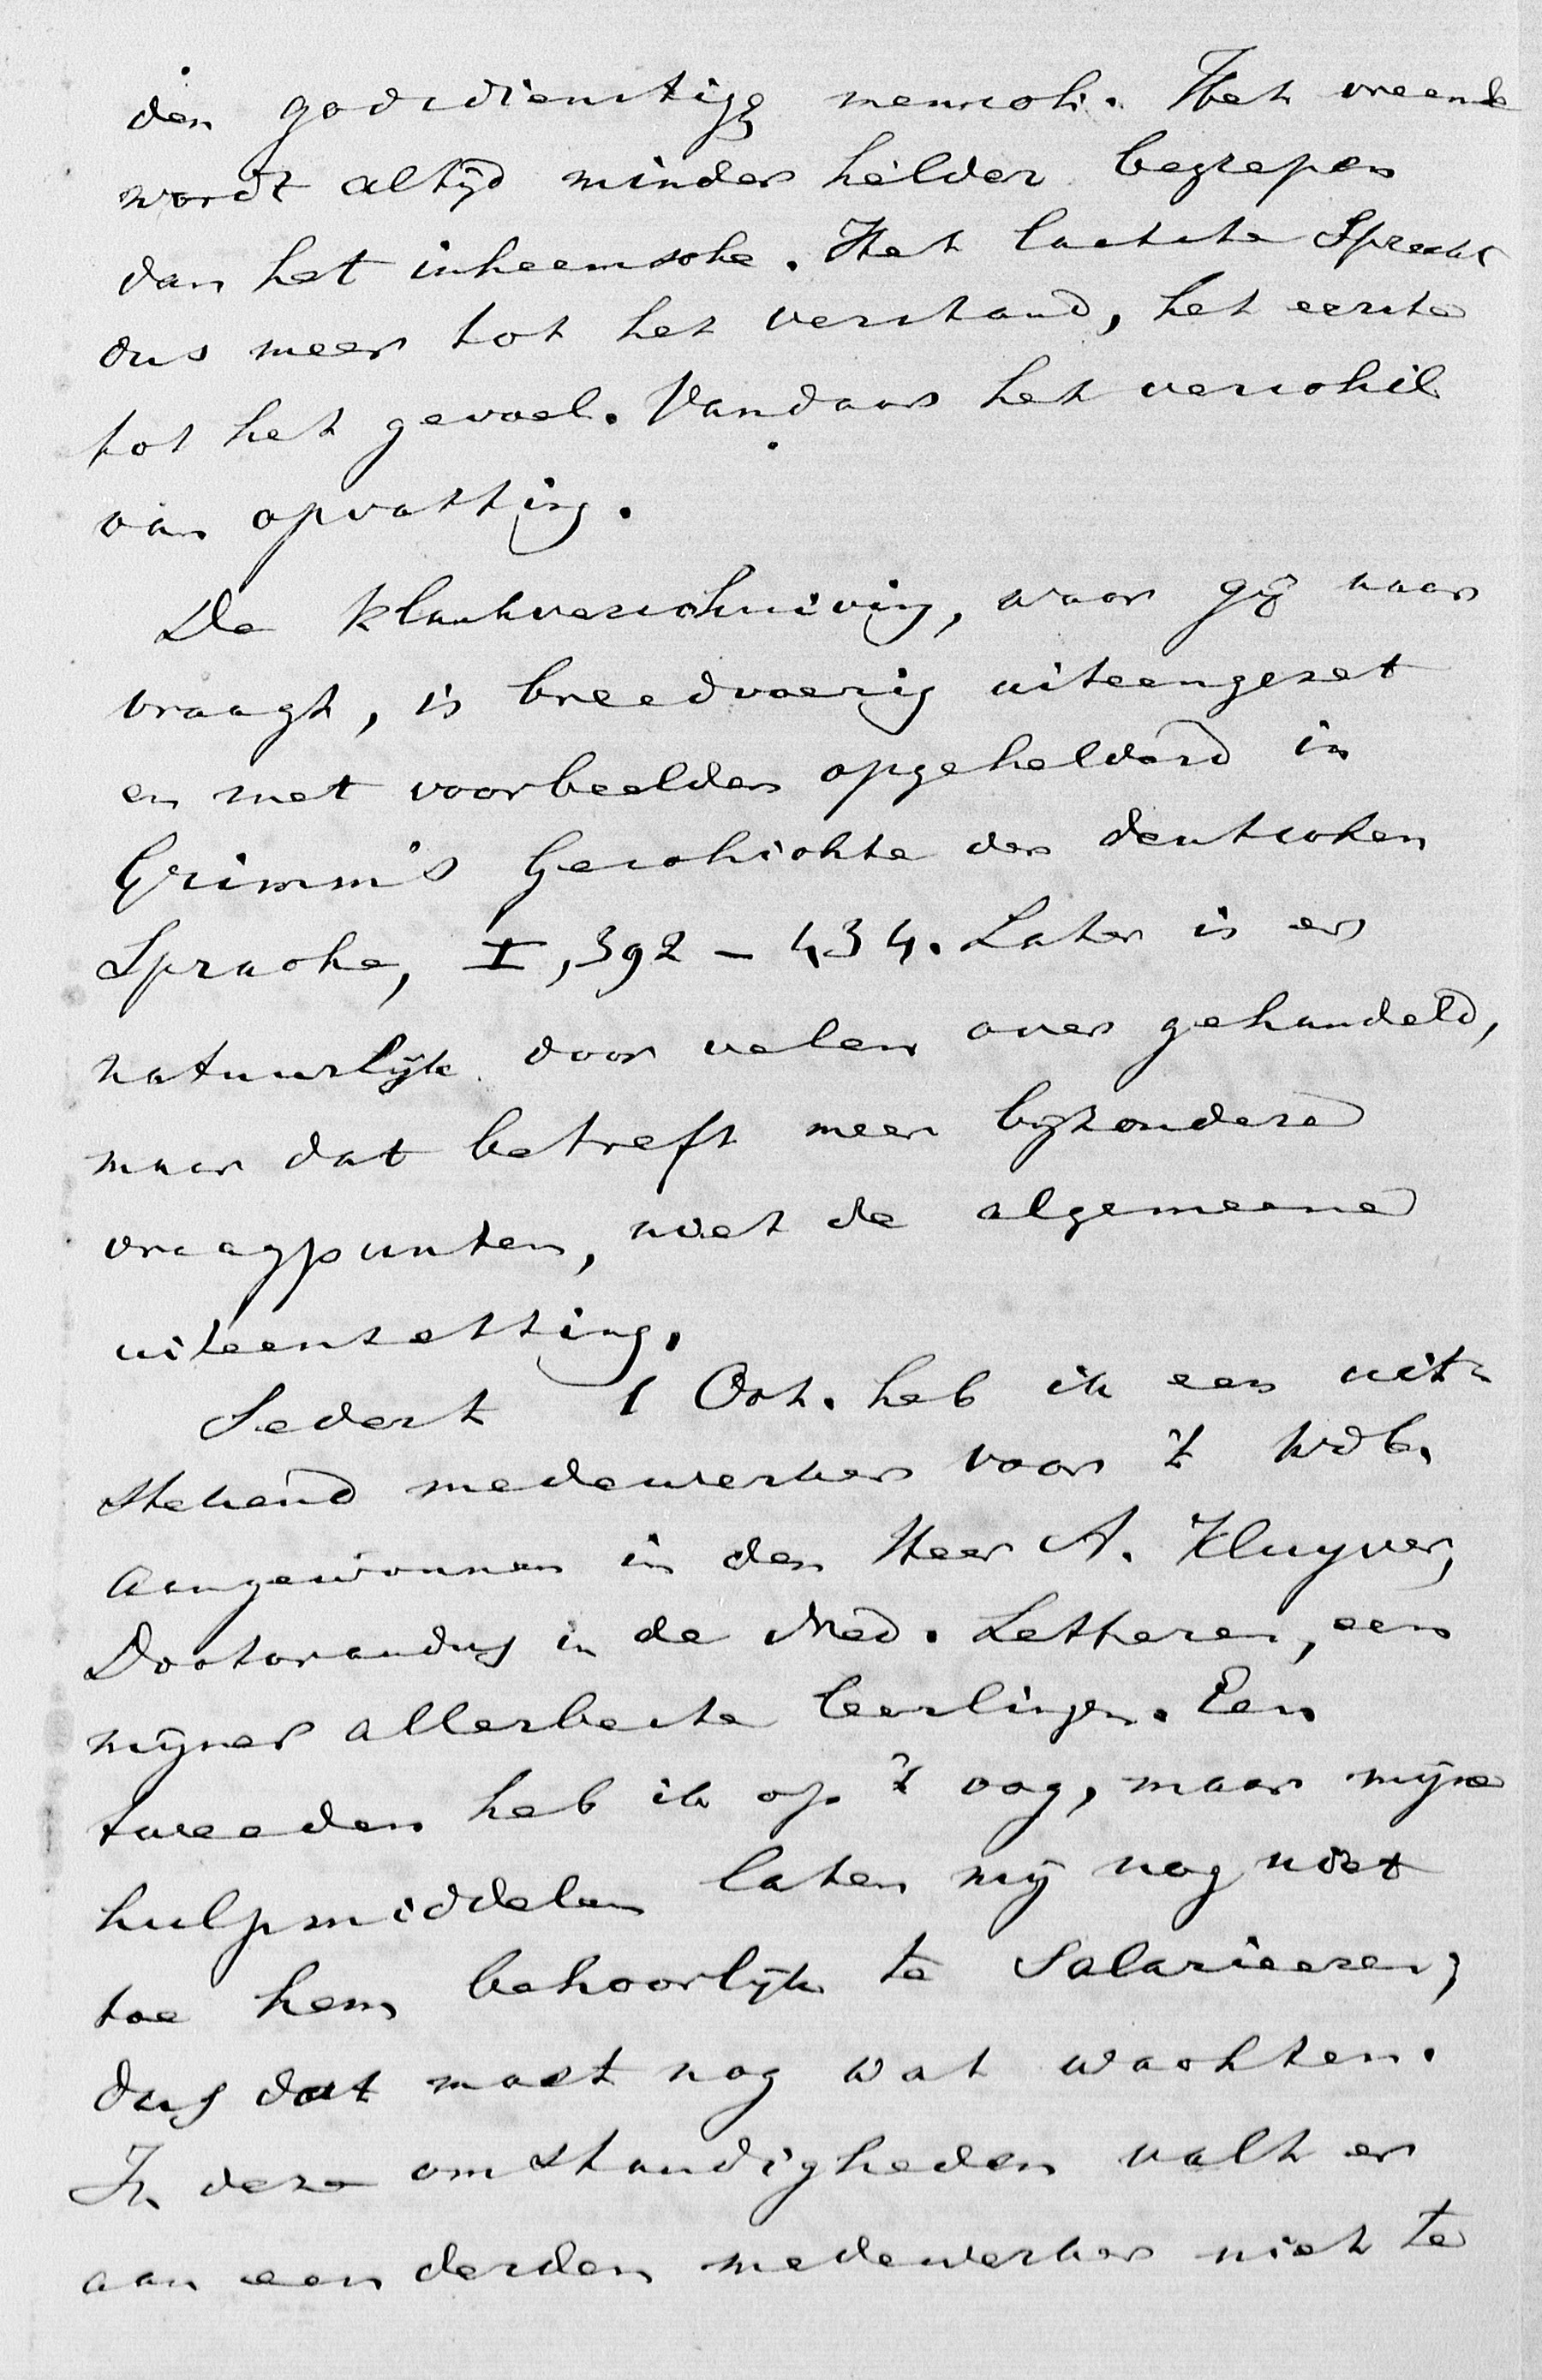 den godsdienstige mensch. Het vreemde
wordt altijd minder helder begrepen
dan het inheemsche. Het laatste spreekt
dus meer tot het verstand, het eerste
tot het gevoel. Vandaar het verschil
van opvatting.
De klankverschuiving, waar gij naar
vraagt, is breedvoerig uiteengezet
en met voorbeelden opgehelderd in
Grimm's Geschichte der deutschen
Sprache, I, 392 – 434. Later is er
natuurlijk door velen over gehandeld,
maar dat betreft meer bijzondere
vraagpunten, niet de algemeene
uiteenzetting.
Sedert 1 Oct. heb ik een uit-
stekend medewerker voor 't Wdb.
aangewonnen in den Heer A. Kluyver,
Doctorandus in de Ned. Letteren, een
mijner allerbeste leerlingen. Een
tweeden heb ik op 't oog, maar mijne
hulpmiddelen laten mij nog niet
toe hem behoorlijk te salarieeren;
dus dat moet nog wat wachten.
In deze omstandigheden valt er
aan een derden medewerker niet te